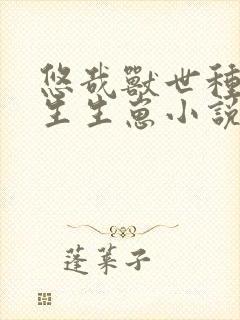 悠哉獸世種
生生崽小說
蓬萊子